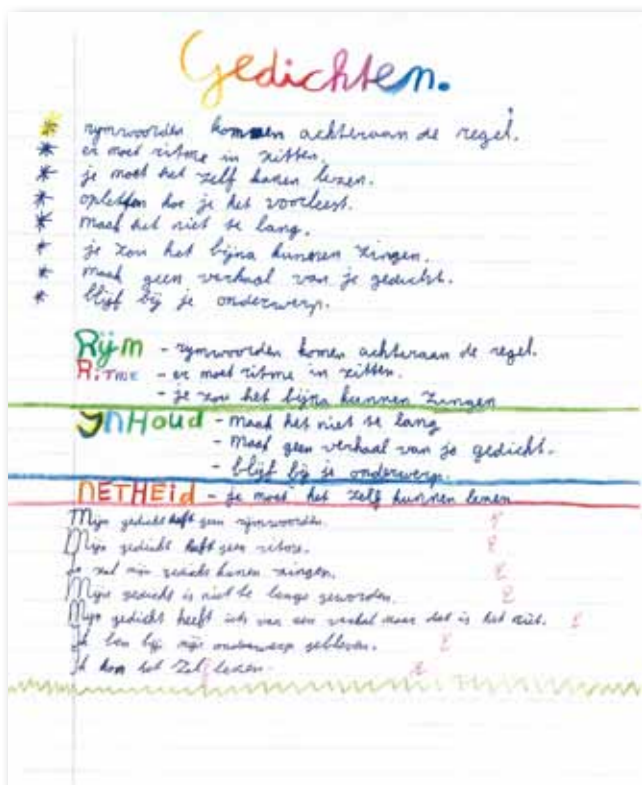 Gedichten.
* rymwoorden kommen achteraan de regel.
* er moet ritme in zitten.
* je moet het zelf kunen lezen.
* opletten hoe je het voorleest.
* maak het niet te lang.
* je zou het bijna kunnen zingen.
* maak geen verhaal van je gedicht.
* blijf bij je onderwerp.
Rijm - rymwoorden komen achteraan de regel.
Ritme - er moet ritme in zitten.
- je zou het bijna kunnen zingen
Inhoud - maak het niet te lang
- maak geen verhaal van je gedicht.
- blijf bij je onderwerp.
NETHEid - je moet het zelf kunnen lezen
Mijn gedicht heft geen rijmwoorden.
Mijn gedicht heft geen ritme.
Je zal mijn gedicht kunen zingen.
Mijn gedicht is niet te lange geworden.
Mijn gedicht heeft iets van een verhal maar dat is het niet.
Ik ben bij mijn onderwerp gebleven.
Ik kon het zelf lezen.